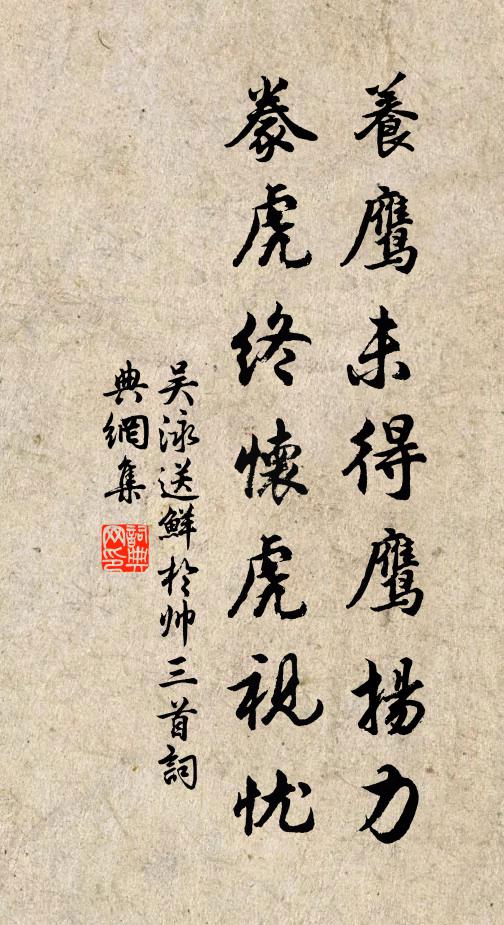 養鷹未得鷹揚力
豢虎終懷虎視忧
吴泳送鮮於帅三首詞
典網集
詞典
网印